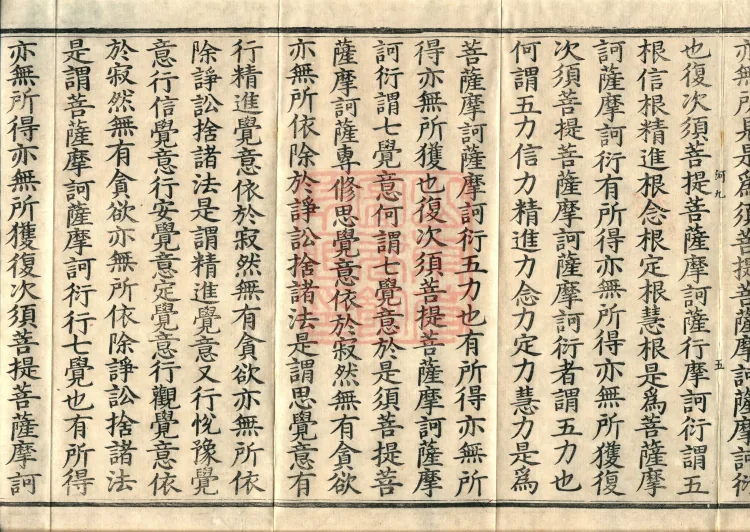 亦無所是是為須菩提菩薩摩訶薩摩訶衍
河九 五
也復次須菩提菩薩摩訶薩行摩訶衍謂五
根信根精進根念根定根慧根是為菩薩摩
訶薩摩訶衍有所得亦無所得亦無所獲復
次須菩提菩薩摩訶薩摩訶衍者謂五力也
何謂五力信力精進力念力定力慧力是為
菩薩摩訶薩摩訶衍五力也有所得亦無所
得亦無所獲也復次須菩提菩薩摩訶薩摩
訶衍謂七覺意何謂七覺意於是須菩提菩
薩摩訶薩專修思覺意依於寂然無有貪欲
亦無所依除於諍訟捨諸法是謂思覺意有
行精進覺意依於寂然無有貪欲亦無所依
除諍訟捨諸法是謂精進覺意又行悅豫覺
意行信覺意行安覺意定覺意行觀覺意依
於寂然無有貪欲亦無所依除諍訟捨諸法
是謂菩薩摩訶薩摩訶衍行七覺也有所得
亦無所得亦無所獲復次須菩提菩薩摩訶